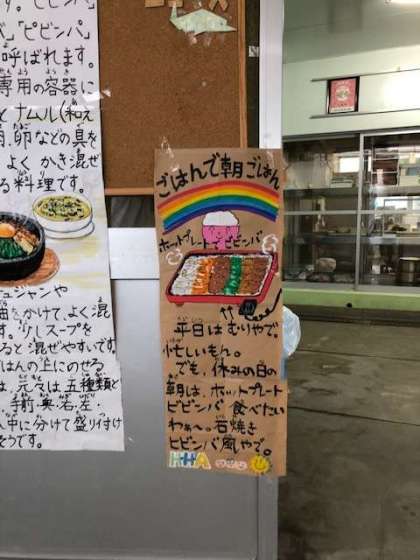 す。ビビンバ」
「ピビンパ」
呼ばれます。
専用の容器に
とナムル(和え
肉、卵などの具を
よくかき混ぜ
る料理です。
チュジャンや
油をかけて、よく混
す。少しスープを
ると混ぜやすいです。
ごはんの上にのせる
は元々は五種類と
手前奥右左
人中に分けて盛り付け
そうです。
ごはんで朝ごはん
ホットプレートでビビンバ
平日はむりやで。
忙しいもん。
でも、休みの日の
朝は、ホットプレート
ビビンバ食べたい
わぁ〜。石焼き
ビビンバ風やで。
HHA